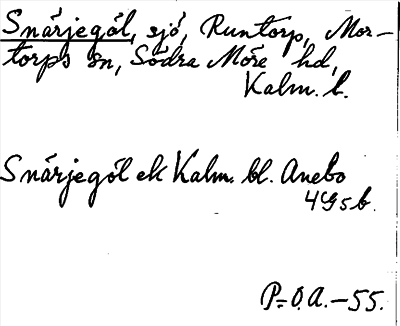 Snärjegöl, sjö, Runtorp, Mor-
torps sn, Södra Möre hd,
Kalm. l.
Snärjegöl ek Kalm. bl. Anebo
4G5b.
P.=O.A.-55.